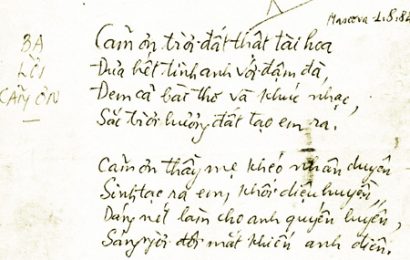 Mascova 1.8.84
BA
LỜI
CẢM ƠN
Cảm ơn trời đất thật tài hoa
Đưa hết tinh anh với đậm đà,
Đem cả bài thơ và khúc nhạc,
Sắc trời hương đất tạo em ra.
Cảm ơn thầy mẹ khéo nhân duyên
Sinh tạo ra em, khối diệu huyền,
Dáng nét làm cho anh quyến luyến,
Sáng ngời đôi mắt khiến anh điên.